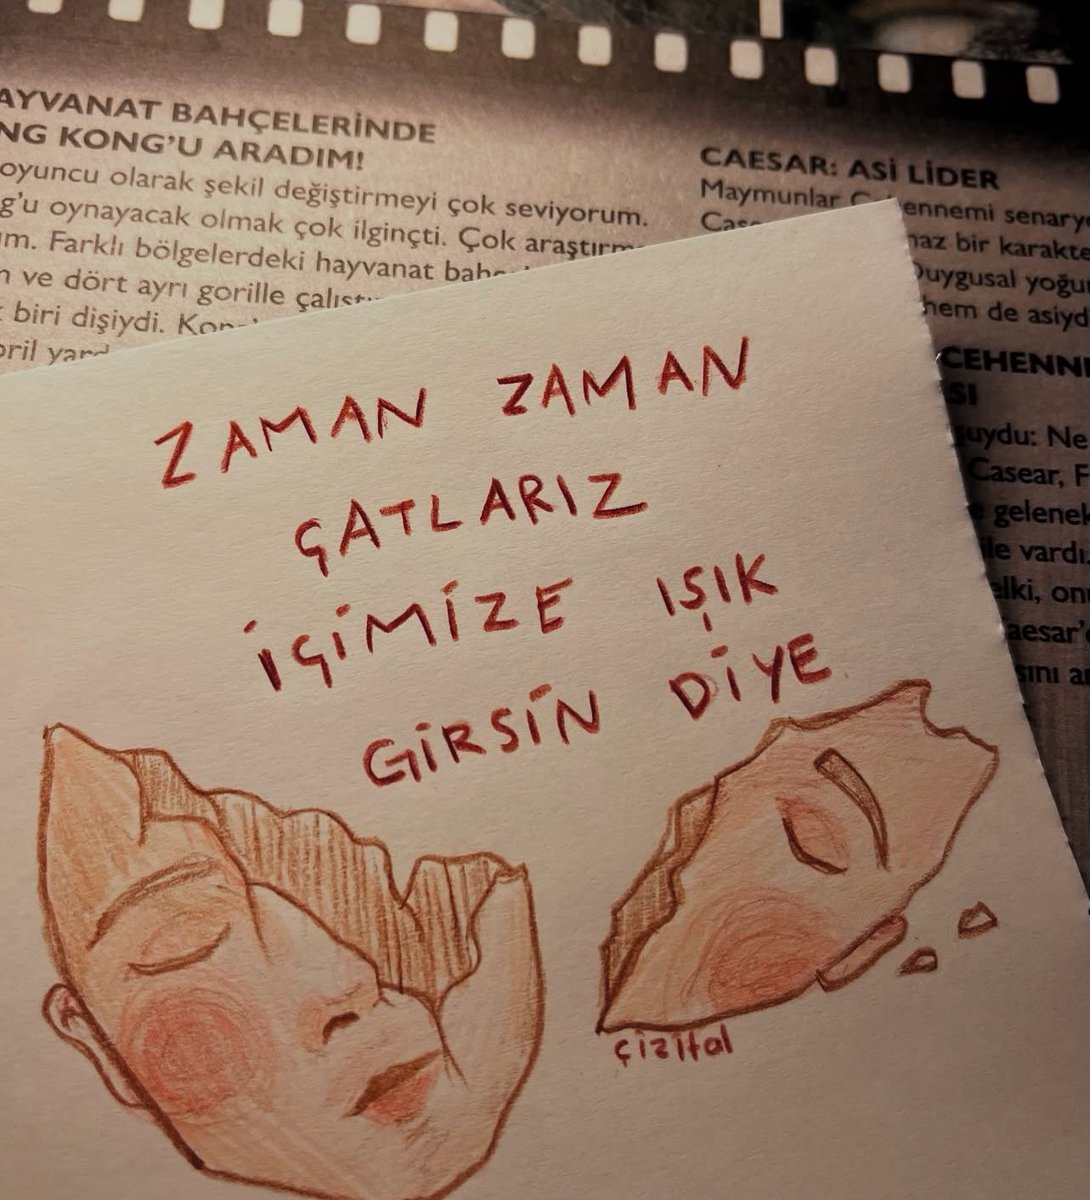 AYVANAT BAHÇELERİNDE
NG KONG'U ARADIM!
oyuncu olarak şekil değiştirmeyi çok seviyorum.
g'u oynayacak olmak çok ilginçti. Çok araştırm
ım. Farklı bölgelerdeki hayvanat bahç
n ve dört ayrı gorille çalıştı
biri dişiydi. Kon
oril yard
CAESAR: ASİ LİDER
Maymunlar C ennemi senaryo
Caes naz bir karakte
Duygusal yoğu
hem de asiyd
CEHENNE
SI
suydu: Ne
Casear, F
gelenek
ile vardı.
elki, onu
aesar'
sını a
ZAMAN ZAMAN
ÇATLARIZ
İÇİMİZE IŞIK
GİRSİN DİYE
çizital